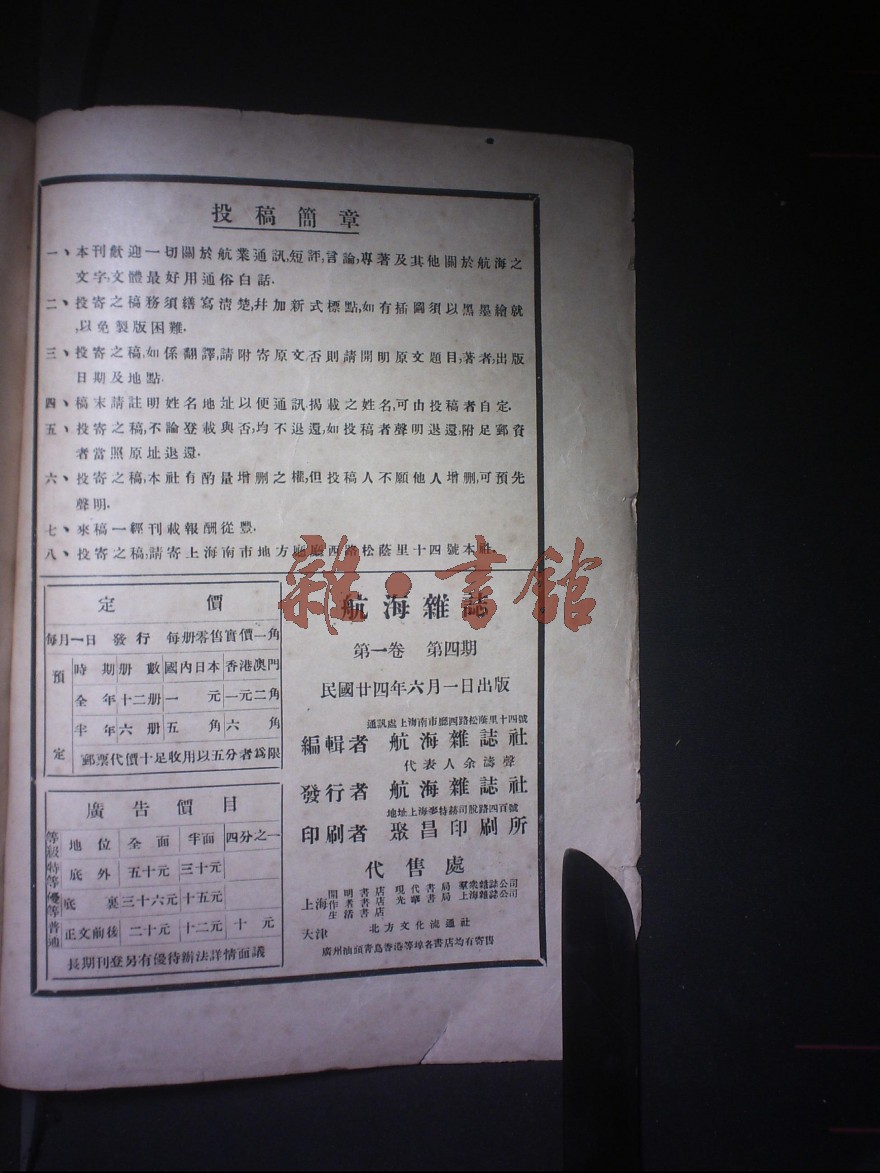 投稿簡章
一、本刊歡迎一切關於航業通訊,短評,言論,專著及其他關於航海之
文字,文體最好用通俗白話.
二、投寄之稿務須繕寫清楚,幷加新式標點,如有插圖須以黑墨繪就
,以免製版困難.
三、投寄之稿,如係翻譯,請附寄原文否則請開明原文題目,著者,出版
日期及地點.
四、稿末請註明姓名地址以便通訊,揭載之姓名,可由投稿者自定.
五、投寄之稿,不論登載與否,均不退還,如投稿者聲明退還,附足郵資
者當照原址退還.
六、投寄之稿,本社有酌量增刪之權,但投稿人不願他人增刪,可預先
聲明.
七、來稿一經刊載報酬從豐.
八、投寄之稿,請寄上海南市地方廳廳西路松蔭里十四號本社.
雜·書館
定價
每月一日 發行 每册零售實價一角
預定
時期 册數 國內日本 香港澳門
全年 十二册 一元 一元二角
半年 六册 五角 六角
郵票代價十足收用以五分者爲限
廣告價目
等級 地位 全面 半面 四分之一
特等 底外 五十元 三十元
優等 底裏 三十六元 十五元
普通 正文前後 二十元 十二元 十元
長期刊登另有優待辦法詳情面議
航海雜誌
第一卷 第四期
民國廿四年六月一日出版
通訊處上海南市廳西路松蔭里十四號
編輯者 航海雜誌社
代表人余濤聲
發行者 航海雜誌社
地址上海麥特赫司脫路四百號
印刷者 聚昌印刷所
代售處
上海
開明書店 現代書局 羣衆雜誌公司
作者書店 光華書局 上海雜誌公司
生活書店
天津 北方文化流通社
廣州汕頭青島香港等埠各書店均有寄售